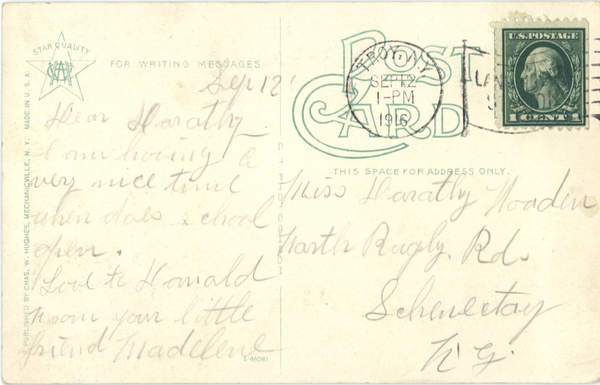 STAR QUALITY
FOR WRITING MESSAGES
POST CARD
TROY, N.Y.
SEP 12
1-PM
1916
U.S. POSTAGE
1 CENT 1
THIS SPACE FOR ADDRESS ONLY.
PUBLISHED BY CHAS. W. HUGHES, MECHANICVILLE, N. Y. MADE IN U. S. A.
Sep 12
Dear Dorathy
I am having a
very nice time
when does school
open.
Love to Donald
From your little
friend Madelene
Miss Dorathy Wooden
North Rugby. Rd.
Schenectay
N Y.